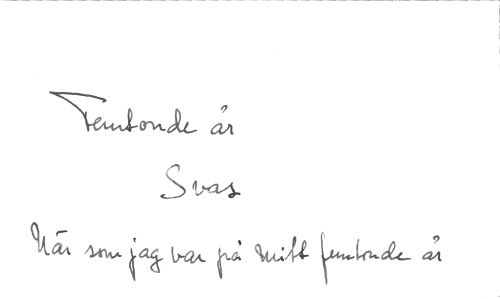 Femtonde år
Svar
När som jag var på mitt femtonde år